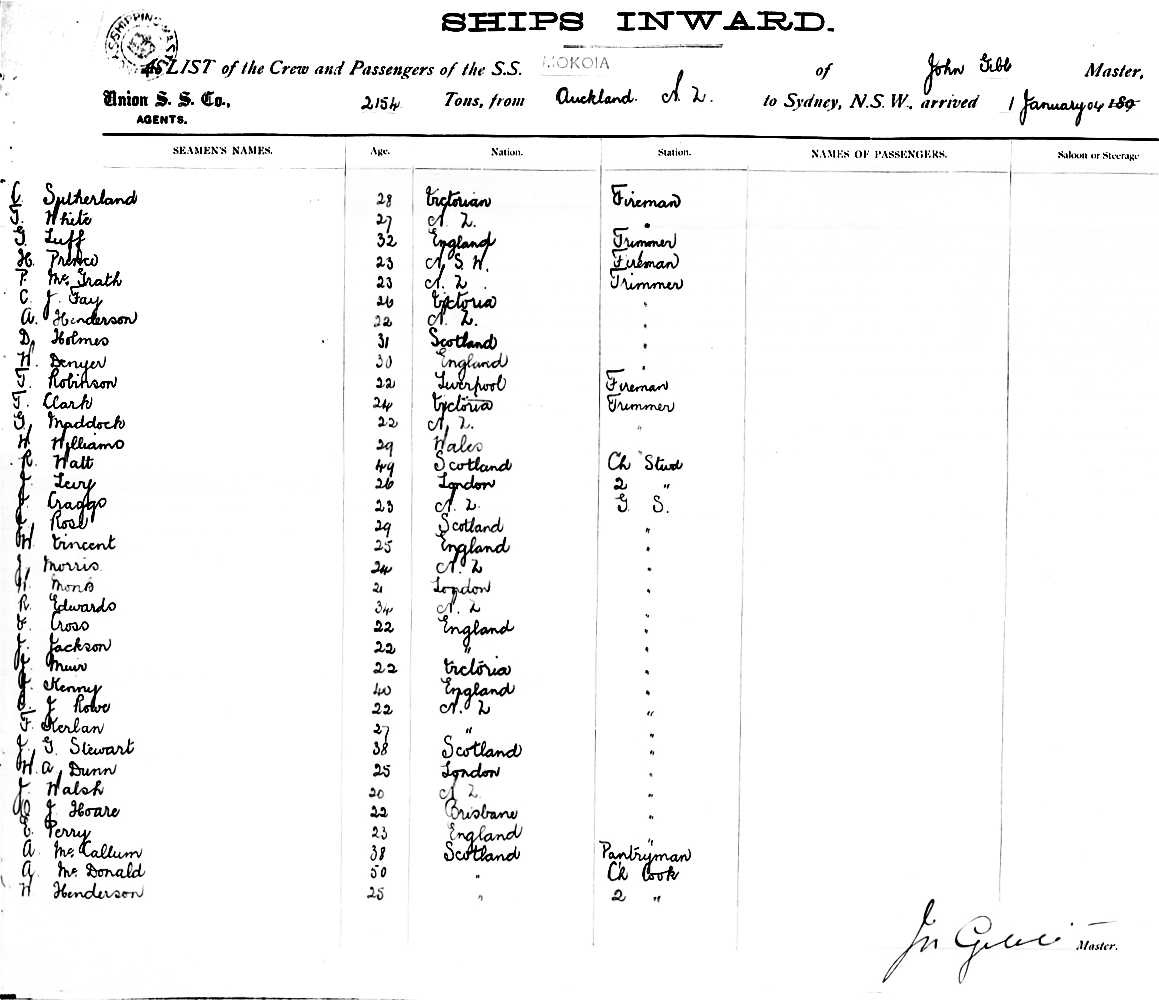 SHIPS INWARD.
A LIST of the Crew and Passengers of the S.S. MOKOIA of John Gibb Master,
Union S. S. Co., 2154 Tons, from Auckland. N. Z. to Sydney, N.S.W., arrived 1 January 04 189
AGENTS.
SEAMEN'S NAMES. Age. Nation. Station. NAMES OF PASSENGERS. Saloon or Steerage
C. Sutherland 28 Victorian Fireman
T. White 27 N. Z. "
G. Luff 32 England Trimmer
H. Prince 23 N. S. W. Fireman
P. Mc Grath 23 N. Z. Trimmer
C. J. Fay 26 Victoria "
A. Henderson 22 N. Z. "
D. Holmes 31 Scotland "
W. Denyer 30 England "
T. Robinson 22 Liverpool Fireman
T. Clark 24 Victoria Trimmer
G. Maddock 22 N. Z. "
W. Williams 29 Wales
R. Watt 49 Scotland Ch Stwd
J. Levy 26 London 2 "
J. Craggs 23 N. Z. G. S.
Rose 29 Scotland "
W. Vincent 25 England "
J. Morris 24 N. Z "
21 London "
R. Edwards 34 N. Z "
Cross 22 England "
J. Jackson 22 " "
J. Muir 22 Victoria "
J. Kenny 40 England "
J. Rowe 22 N. Z "
F. Kerlan 27 " "
J. G. Stewart 38 Scotland "
W. A. Dunn 25 London "
J. Walsh 20 N Z "
J. Hoare 22 Brisbane "
E. Perry 23 England "
A. Mc Callum 38 Scotland Pantryman
A. Mc Donald 50 " Ch Cook
W Henderson 25 " 2 "
Jn Gibb Master.